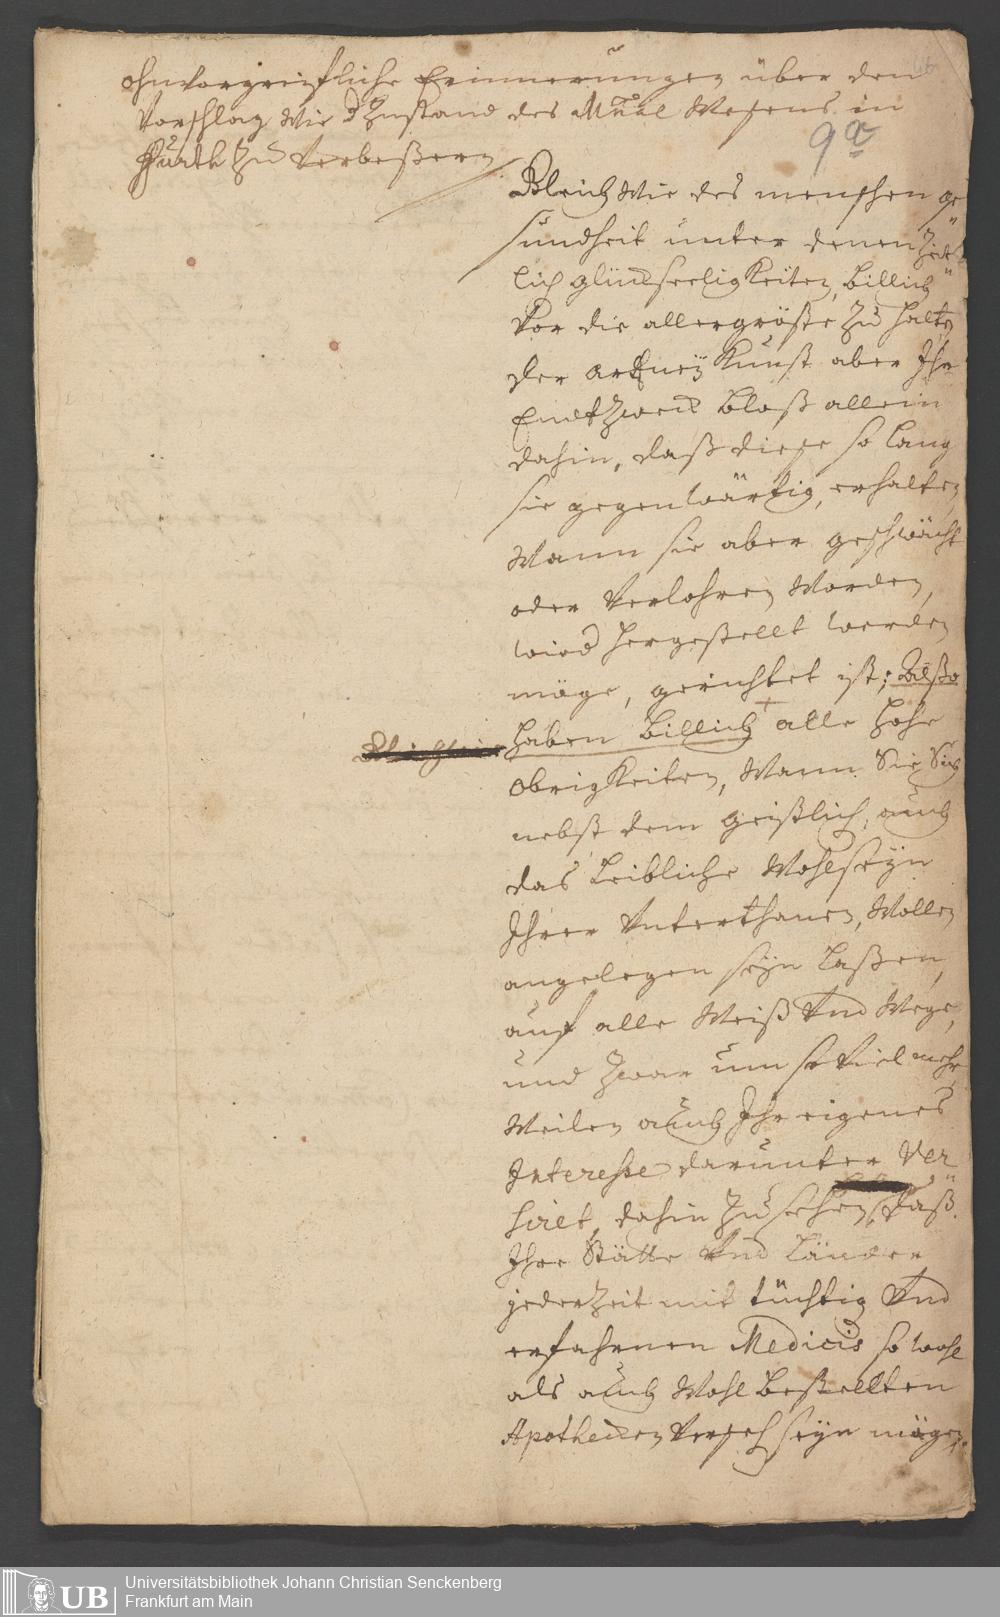 ohnvorgreifliche Erinnerungen über den
Vorschlag Wie d Zustand des Wesens in
Fürth zu Verbeßern
9 a
Gleich Wie des menschen ge
sundheit unter denen
lich glückseeligkeiten, billich
Vor die allergröste zu halten
der artzneÿ Kunst aber Ihr
Endtzweck bloß allein
dahin, daß diese so lang
sie gegenwärtig, erhalten
Wann sie aber geschwächt
oder Verlohren Worden,
wied hergestellt werden
möge, gerichtet ist; Alßo
haben billich alle hohe
obrigkeiten, Wann Sie Sich
nebst dem geistlich, auch
das Leibliche Wohlseÿn
Ihrer Unterthanen, Wollen
angelegen seÿn laßen,
auf alle Weiß Und Wege,
und zwar um so Viel mehr,
Weilen auch Ihr eigenes
Interesse darunter Ver
siret, dahin zu sehen, daß
Ihre Stätte Und Länder
jederzeit mit tüchtig Und
erfahrnen Medicis so wohl
als auch Wohl bestellten
Apothecken Verseh seÿn mögen.
UB
Universitätsbibliothek Johann Christian Senckenberg
Frankfurt am Main